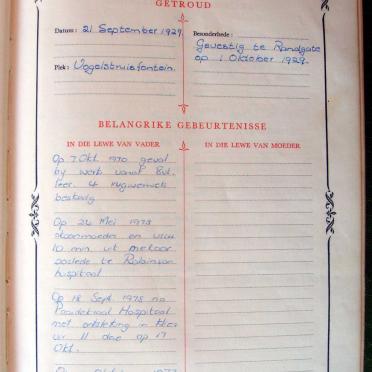 GETROUD
Datum: 21 September 1929
Besonderhede:
Gevestig te Randgate
op 1 Oktober 1929.
Plek: Vogelstruisfontein.
BELANGRIKE GEBEURTENISSE
IN DIE LEWE VAN VADER
IN DIE LEWE VAN MOEDER
Op 7 Okt. 1970 geval
by werk vanaf
leer. 4 rugwerwels
beskadig
Op 24 Mei 1973
en
10 min. uit mekaar
te Robinson
hospitaal
Op 18 Sept. 1975 na
Paardekraal Hospitaal
met ontsteking in
vir 11 dae op 17
Okt.